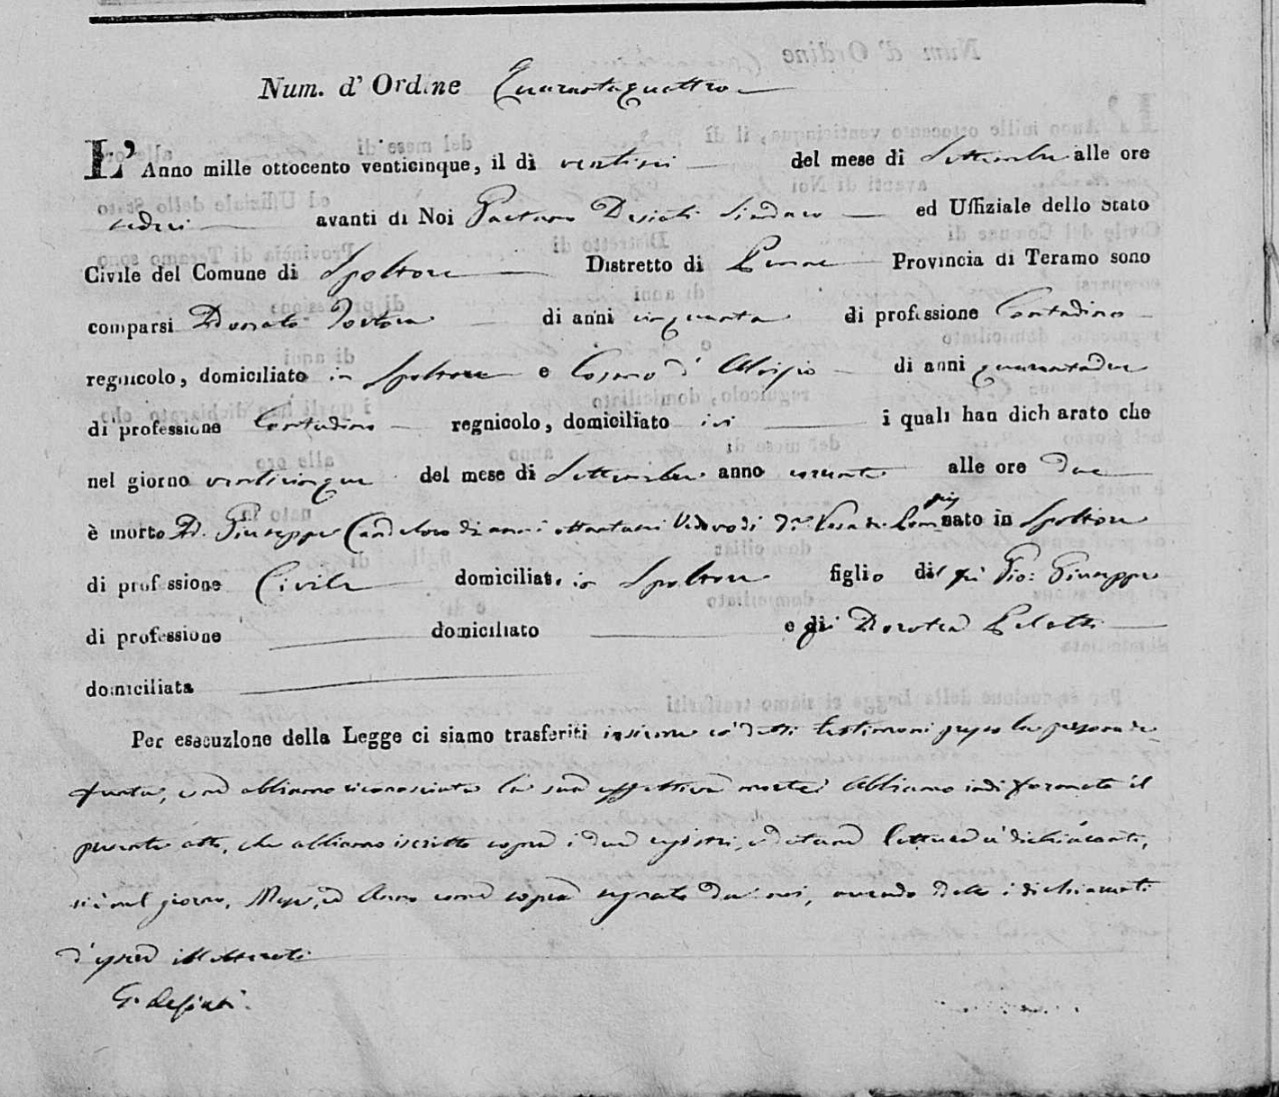 Num. d' Ordine Quarantaquattro
L' Anno mille ottocento venticinque, il dì ventisei del mese di Settembre alle ore
sedici avanti di Noi Gaetano Desiati Sindaco ed Uffiziale dello stato
Civile del Comune di Spoltore Distretto di Penne Provincia di Teramo sono
comparsi Donato Tortora di anni cinquanta di professione Contadino
regnicolo, domiciliato in Spoltore e Cosmo d' Aloisio di anni quarantadue
di professione Contadino regnicolo, domiciliato ivi i quali han dich arato che
nel giorno venticinque del mese di Settembre anno corrente alle ore due
è morto D. Giuseppe Candeloro di anni ottantasei Vedovo di D.a Rosa de nato in Spoltore
di professione Civile domiciliato in Spoltore figlio del qu Gio: Giuseppe
di professione domiciliato e di Dorotea
domiciliata
Per esecuzione della Legge ci siamo trasferiti insieme co' detti testimonj presso la persona de
funta, ed abbiamo riconosciuta la sua effettiva morte. Abbiamo indi formato il
presente atto, che abbiamo iscritto sopra i due registri, e datane lettura a' dichiaranti,
nel giorno, Mese, ed Anno come sopra segnato da noi, avendo detto i dichiaranti
d'essere illetterati
G. Desiati